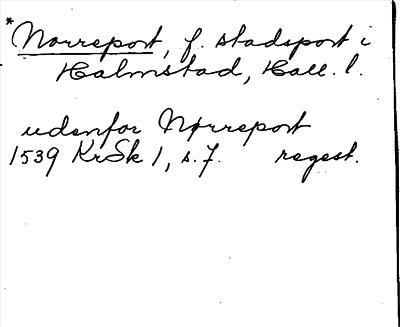 *Norreport, f. stadsport i
Halmstad, Hall. l.
udenfor Nørreport
1539 KrSk 1, s. 7. regest.